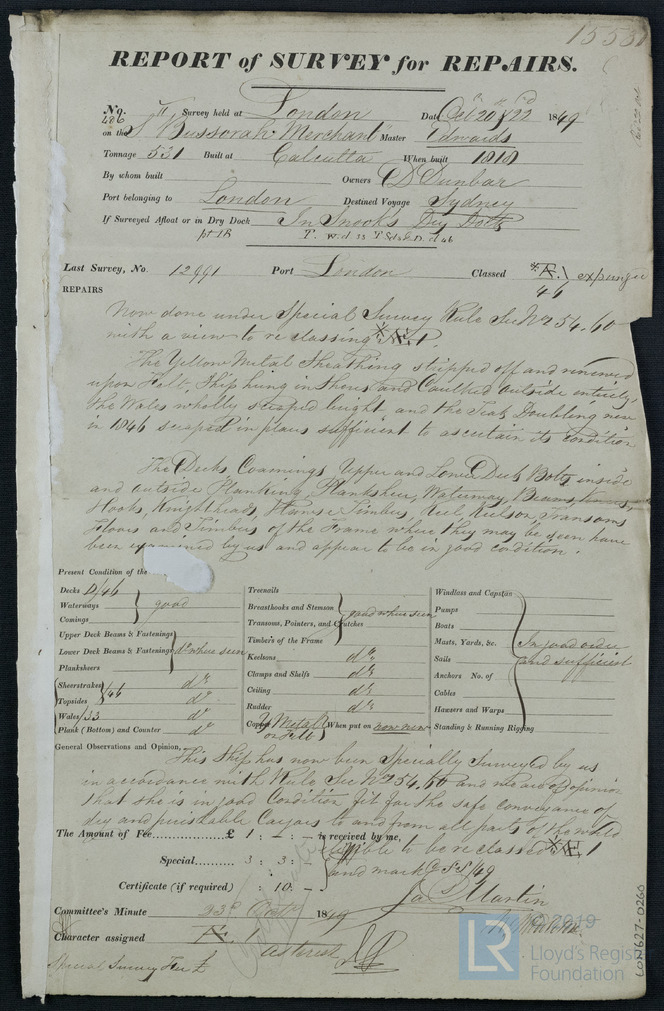 15531
REPORT of SURVEY for REPAIRS.
No. 486 Survey held at London Date, Octr 20th & 22nd 1849
on the "Bussorah Merchant" Master Edwards
Tonnage 531 Built at Calcutta When built 1818
By whom built Owners D Dunbar
Port belonging to London Destined Voyage Sydney
If Surveyed Afloat or in Dry Dock In Snook's Dry Dock
pt IB T. wd 33 TSds & D. d 46
Last Survey, No. 12991 Port London Classed *Æ.1 expunge
46
REPAIRS
Now done under Special Survey Rule Sec No 54.60
with a view to reclassing *Æ.1.
The Yellow Metal Sheathing stripped off and renewed
upon Felt, Ship hung in Shores and Caulked outside entirely,
the Wales wholly scraped bright, and the Teak Doubling new
in 1846 scraped in places sufficient to ascertain its condition
The Decks Coamings, Upper and Lower Deck Bolts inside
and outside Planking, Plankshear, Waterway, Beams,
Hooks, Knightheads, Hawse Timber, Keel Keelson, Transoms
Floors and Timbers of the Frame where they may be seen have
been examined by us and appear to be in good condition.
Present Condition of the
Decks D/46
Waterways good
Comings
Upper Deck Beams & Fastenings
Lower Deck Beams & Fastenings do where seen
Planksheers
Sheerstrakes do
Topsides 46 do
Wales 33 do
Plank (Bottom) and Counter do
Treenails
Breasthooks and Stemson good where seen
Transoms, Pointers, and Crutches
Timbers of the Frame
Keelsons do
Clamps and Shelfs do
Ceiling do
Rudder do
Copper Y Metal on Felt When put on now new
Windlass and Capstan
Pumps
Boats
Masts, Yards, &c. In good order
Sails and sufficient
Anchors No. of
Cables
Hawsers and Warps
Standing & Running Rigging
General Observations and Opinion,
This Ship has now been Specially Surveyed by us
in accordance with Rule Sec No 54.60 and we are of opinion
that she is in good Condition fit for the safe conveyance of
dry and perishable Cargoes to and from all parts of the world
The Amount of Fee £ 1 : - : - is received by me,
eligible to be reclassed *Æ 1
Special 3 : 3 :
and mark'd S S /49
Certificate (if required) : 10 : -
Jas Martin
Committee's Minute 23d Octr 1849
Character assigned Æ. 1
asterisk
Special Survey Fee £
LON627-0260
© 2019
LR
Lloyd's Register
Foundation